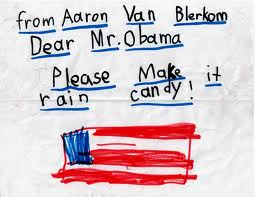 from Aaron Van Blerkom
Dear Mr. Obama
Please Make it
rain candy!